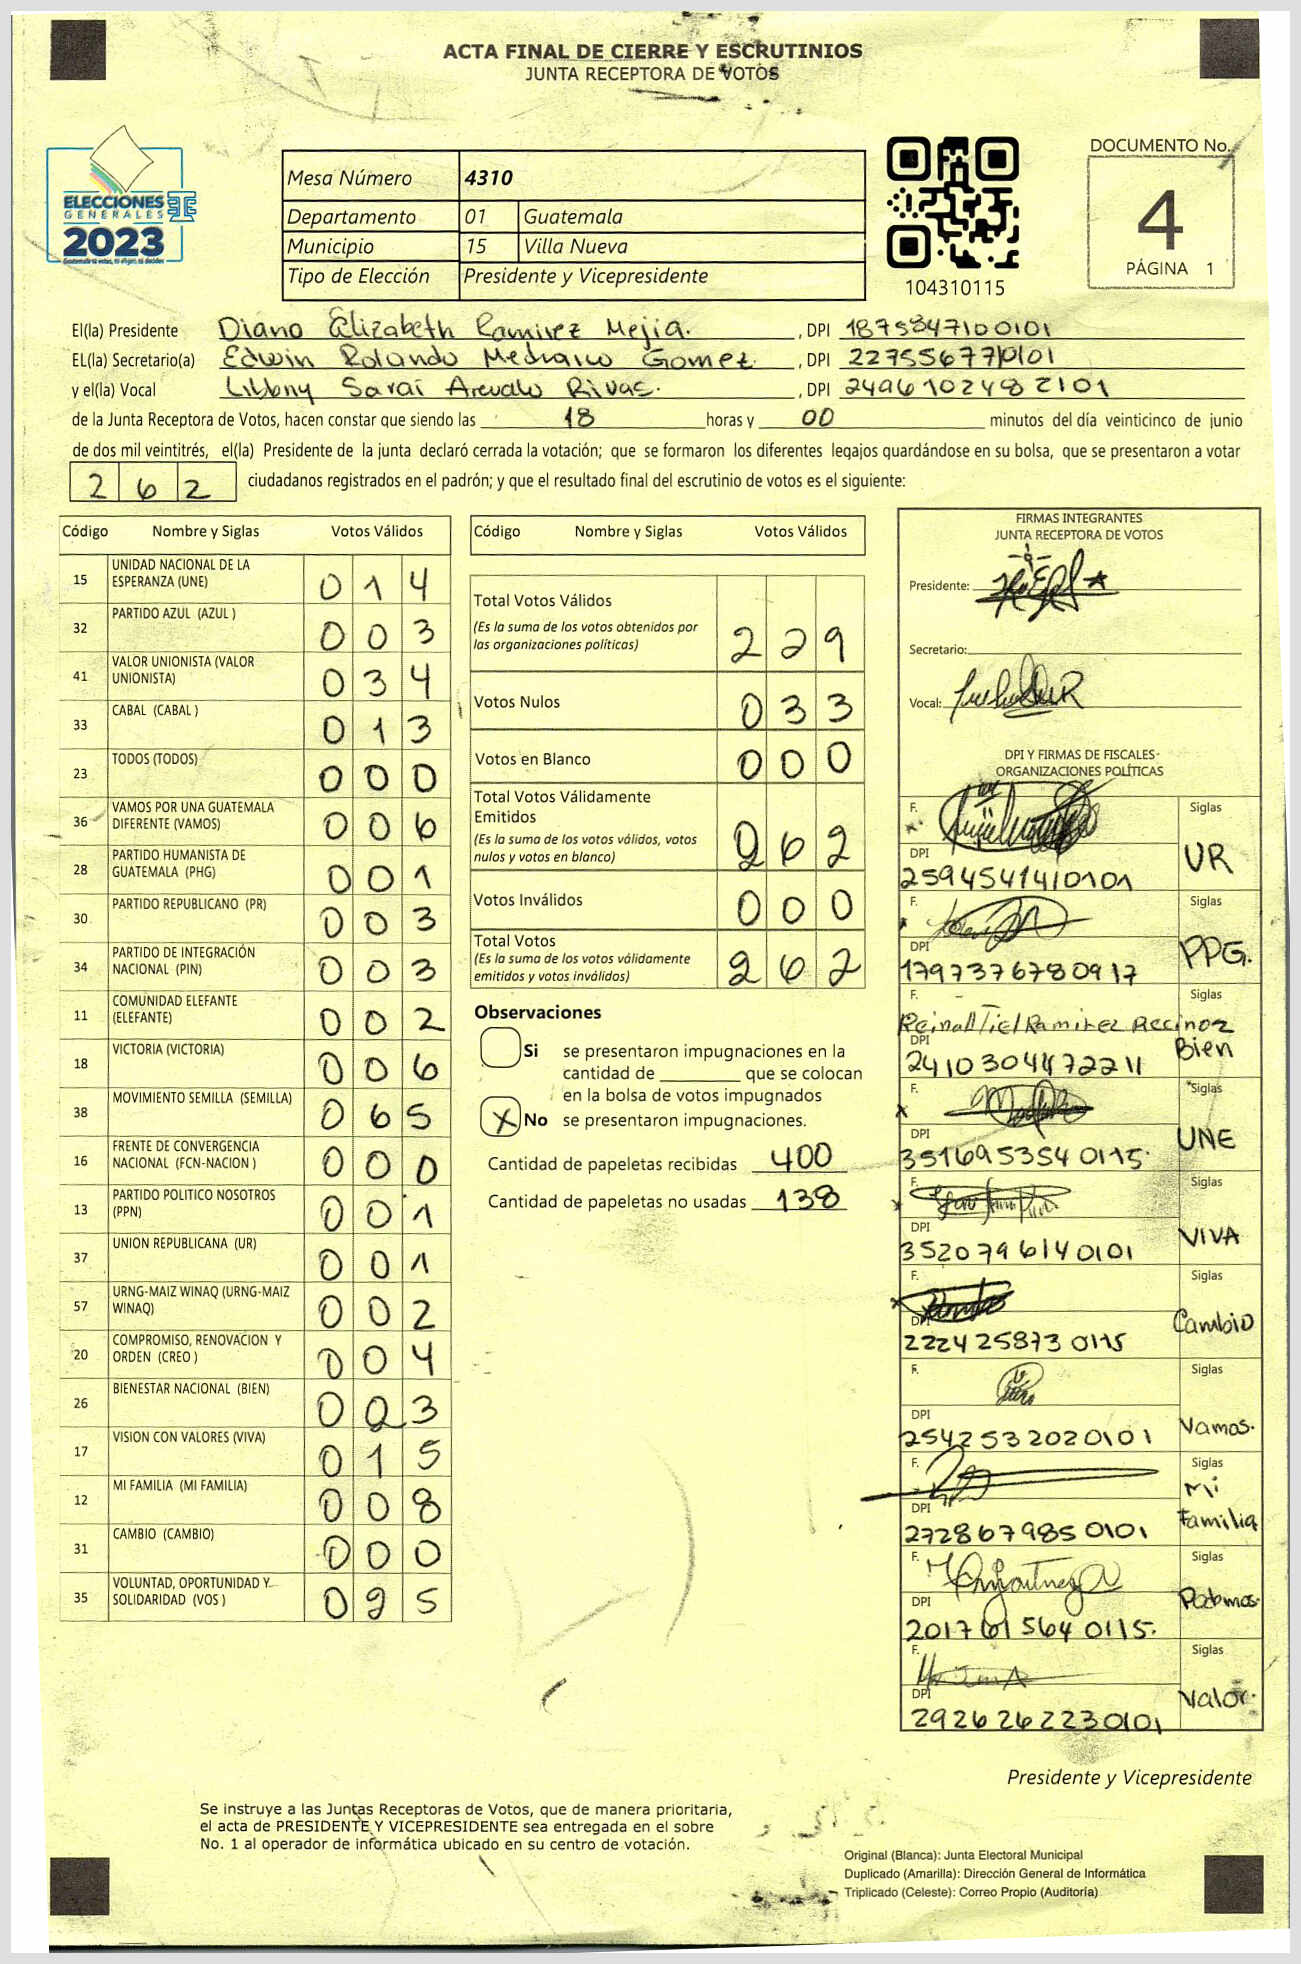 ACTA FINAL DE CIERRE Y ESCRUTINIOS
JUNTA RECEPTORA DE VOTOS
ELECCIONES
GENERALES
2023
Mesa Número 4310
Departamento 01 Guatemala
Municipio 15 Villa Nueva
Tipo de Elección Presidente y Vicepresidente
104310115
DOCUMENTO No.
4
PÁGINA 1
El(la) Presidente Diana Elizabeth Ramirez Mejia. , DPI 1875847100101
EL(la) Secretario(a) Edwin Rolando Medrano Gomez. , DPI 2275567710101
y el(la) Vocal Libbny Sarai Arevalo Rivas. , DPI 2496102482101
de la Junta Receptora de Votos, hacen constar que siendo las 18 horas y 00 minutos del día veinticinco de junio
de dos mil veintitrés, el(la) Presidente de la junta declaró cerrada la votación; que se formaron los diferentes legajos guardándose en su bolsa, que se presentaron a votar
262 ciudadanos registrados en el padrón; y que el resultado final del escrutinio de votos es el siguiente:
Código Nombre y Siglas Votos Válidos
15 UNIDAD NACIONAL DE LA ESPERANZA (UNE) 014
32 PARTIDO AZUL (AZUL ) 003
41 VALOR UNIONISTA (VALOR UNIONISTA) 034
33 CABAL (CABAL ) 013
23 TODOS (TODOS) 000
36 VAMOS POR UNA GUATEMALA DIFERENTE (VAMOS) 006
28 PARTIDO HUMANISTA DE GUATEMALA (PHG) 001
30 PARTIDO REPUBLICANO (PR) 003
34 PARTIDO DE INTEGRACIÓN NACIONAL (PIN) 003
11 COMUNIDAD ELEFANTE (ELEFANTE) 002
18 VICTORIA (VICTORIA) 006
38 MOVIMIENTO SEMILLA (SEMILLA) 065
16 FRENTE DE CONVERGENCIA NACIONAL (FCN-NACION ) 000
13 PARTIDO POLITICO NOSOTROS (PPN) 001
37 UNION REPUBLICANA (UR) 001
57 URNG-MAIZ WINAQ (URNG-MAIZ WINAQ) 002
20 COMPROMISO, RENOVACION Y ORDEN (CREO ) 004
26 BIENESTAR NACIONAL (BIEN) 003
17 VISION CON VALORES (VIVA) 015
12 MI FAMILIA (MI FAMILIA) 008
31 CAMBIO (CAMBIO) 000
35 VOLUNTAD, OPORTUNIDAD Y SOLIDARIDAD (VOS ) 095
Código Nombre y Siglas Votos Válidos
Total Votos Válidos 229
(Es la suma de los votos obtenidos por
las organizaciones políticas)
Votos Nulos 033
Votos en Blanco 000
Total Votos Válidamente
Emitidos 262
(Es la suma de los votos válidos, votos
nulos y votos en blanco)
Votos Inválidos 000
Total Votos 262
(Es la suma de los votos válidamente
emitidos y votos inválidos)
Observaciones
Si se presentaron impugnaciones en la
cantidad de ________ que se colocan
en la bolsa de votos impugnados
X No se presentaron impugnaciones.
Cantidad de papeletas recibidas 400
Cantidad de papeletas no usadas 138
FIRMAS INTEGRANTES
JUNTA RECEPTORA DE VOTOS
Presidente:
Secretario:
Vocal:
DPI Y FIRMAS DE FISCALES
ORGANIZACIONES POLÍTICAS
F. Siglas UR
DPI 2594541410101
F. Siglas PPG.
DPI 1797376780917
F. Siglas Bien
DPI 2410304472211
F. Siglas UNE
DPI 3516953540115.
F. Siglas VIVA
DPI 3520796140101
F. Siglas Cambio
DPI 2224258730115
F. Siglas Vamos.
DPI 2542532020101
F. Siglas Mi Familia
DPI 2728679850101
F. Siglas
DPI 2017615640115.
F. Siglas Valor.
DPI 2926262230101
Presidente y Vicepresidente
Se instruye a las Juntas Receptoras de Votos, que de manera prioritaria,
el acta de PRESIDENTE Y VICEPRESIDENTE sea entregada en el sobre
No. 1 al operador de informática ubicado en su centro de votación.
Original (Blanca): Junta Electoral Municipal
Duplicado (Amarilla): Dirección General de Informática
Triplicado (Celeste): Correo Propio (Auditoría)